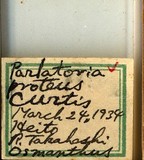 Parlatoria
proteus
Curtis
March 24, 1934
Heito
R. Takahashi
Osmanthus